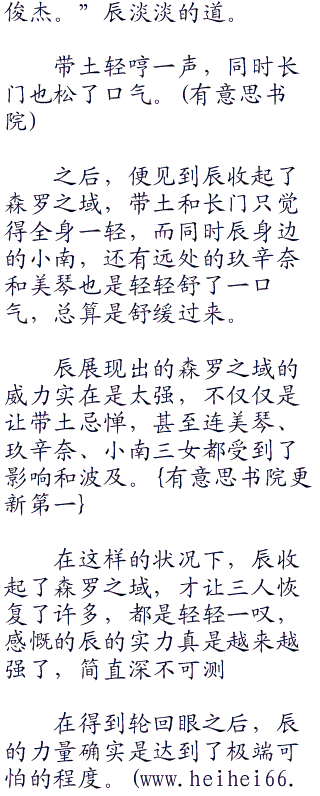 俊杰。”辰淡淡的道。
带土轻哼一声，同时长
门也松了口气。(有意思书
院)
之后，便见到辰收起了
森罗之域，带土和长门只觉
得全身一轻，而同时辰身边
的小南，还有远处的玖辛奈
和美琴也是轻轻舒了一口
气，总算是舒缓过来。
辰展现出的森罗之域的
威力实在是太强，不仅仅是
让带土忌惮，甚至连美琴、
玖辛奈、小南三女都受到了
影响和波及。{有意思书院更
新第一}
在这样的状况下，辰收
起了森罗之域，才让三人恢
复了许多，都是轻轻一叹，
感慨的辰的实力真是越来越
强了，简直深不可测
在得到轮回眼之后，辰
的力量确实是达到了极端可
怕的程度。(www.heihei66.